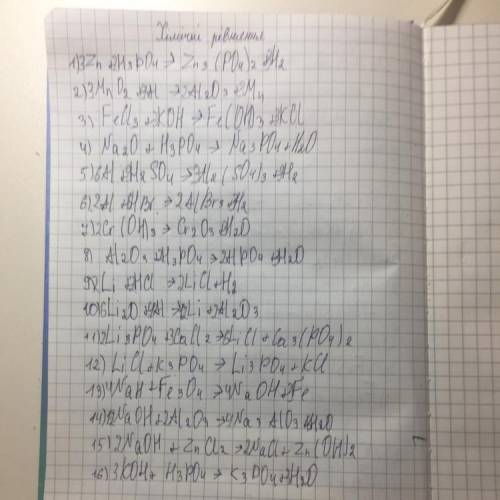 Хімічні рівняння
1) 3Zn + 2H3PO4 → Zn3(PO4)2 + 3H2
2) 3MnO2 + Al → 2Al2O3 + Mn
3) FeCl3 + 3KOH → Fe(OH)3 + KCl
4) Na2O + H3PO4 → Na3PO4 + H2O
5) 6Al + SO4 → (SO4)3 +
6) 2Al + HBr → 2AlBr3 + H2
7) 2Cr(OH)3 → Cr2O3 + 3H2O
8) Al2O3 + 2H3PO4 → 2AlPO4 + 3H2O
9) 2Li + 2HCl → 2LiCl + H2
10) 6Li2O + Al → Li + 2Al2O3
11) 2Li3PO4 + 3CaCl2 → 6LiCl + Ca3(PO4)2
12) LiCl + K3PO4 → Li3PO4 + KCl
13) 4NaH + Fe3O4 → 4NaOH + 3Fe
14) 12NaOH + 2Al2O3 → 4Na3AlO3 + 6H2O
15) 2NaOH + ZnCl2 → 2NaCl + Zn(OH)2
16) 3KOH + H3PO4 → K3PO4 + 3H2O